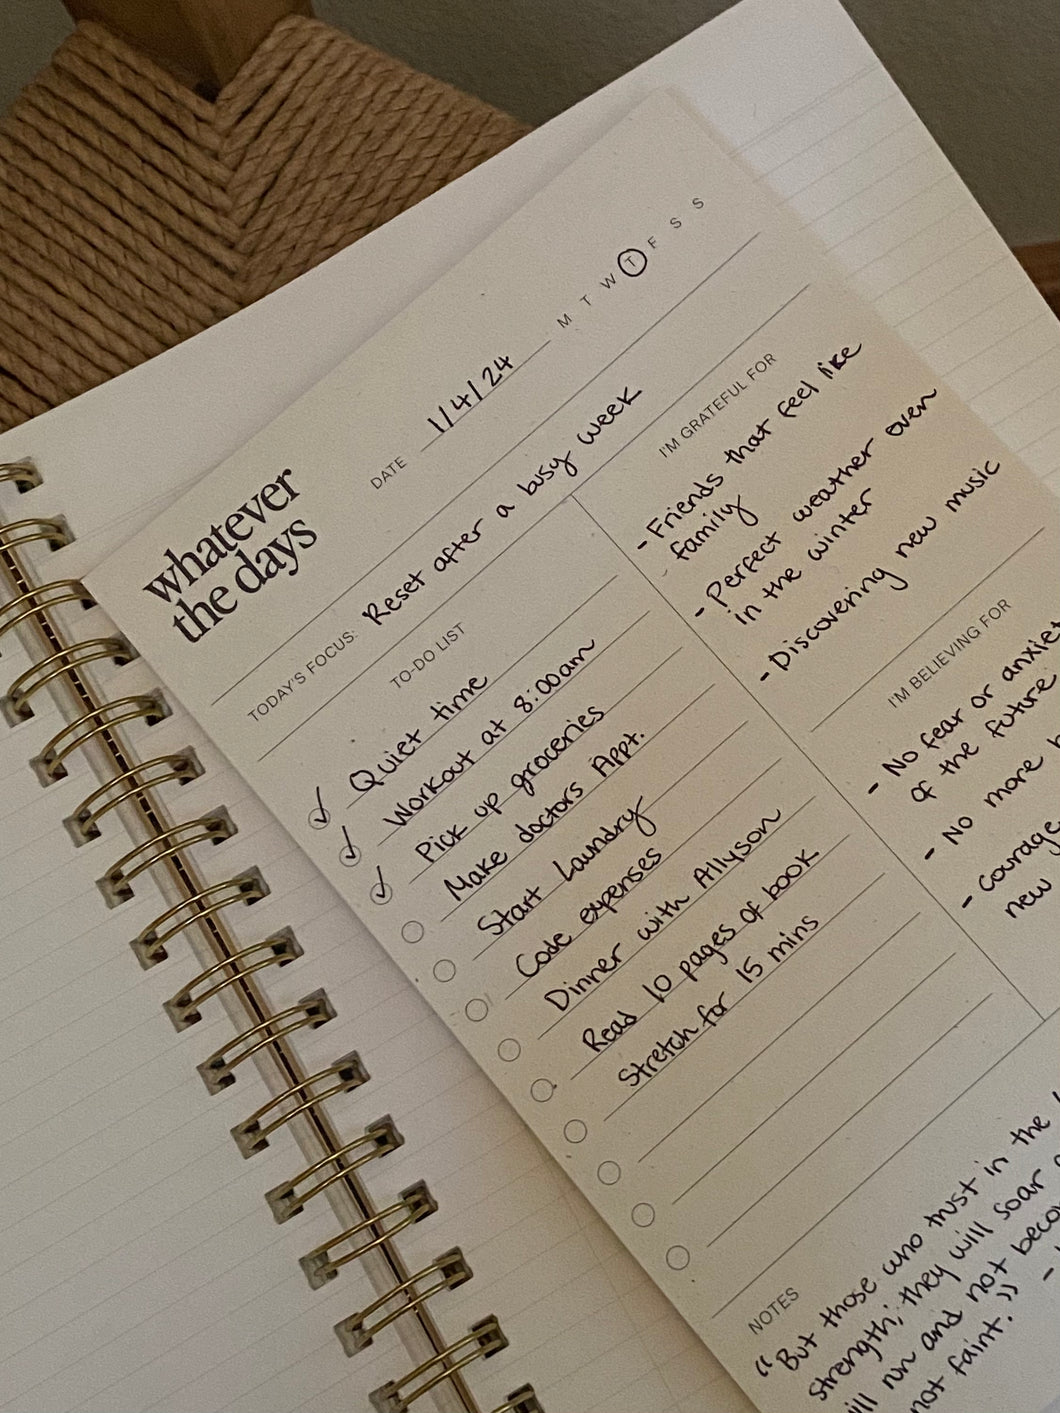 whatever
the days
DATE 1/4/24 M T W T F S S
TODAY'S FOCUS: Reset after a busy week
TO-DO LIST
Quiet time
Workout at 8:00am
Pick up groceries
Make doctors Appt.
Start Laundry
Code expenses
Dinner with Allyson
Read 10 pages of book
Stretch for 15 mins
I'M GRATEFUL FOR
- Friends that feel like
family
- Perfect weather even
in the winter
- Discovering new music
I'M BELIEVING FOR
- No fear or
of the future
- No more
- Courage
new
NOTES
"But those who trust in the
strength; they will soar
run and not
not faint."